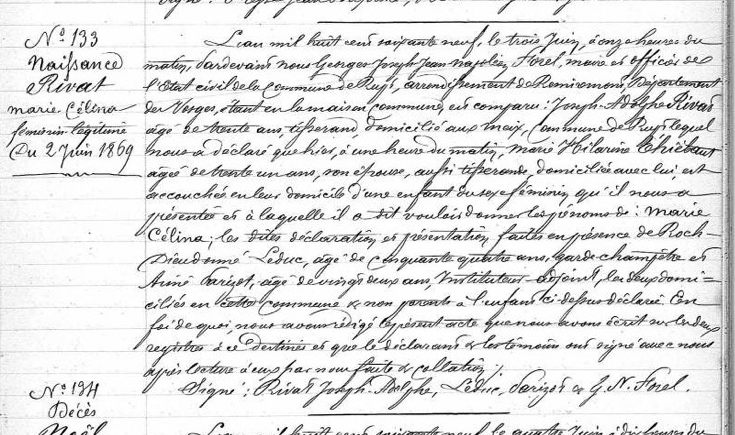 N° 133
Naissance
Rivat
marie Célina
féminin légitime
Du 2 Juin 1869
L'an mil huit cent soixante neuf, le trois Juin, à onze heures du
matin, Pardevant nous Georges Joseph Jean napoléon Forel, maire et officier de
l'Etat civil de la Commune de Rupt, arrondissement de Remiremont, Département
des Vosges, étant en la maison commune, est comparu : Joseph Adolphe Rivat
âgé de trente ans, tisserand, domicilié aux meix, commune de Rupt lequel
nous a déclaré que hier, à une heure du matin, marie Hilarine Thiébaut
âgée de trente un ans, son épouse, aussi tisserande, domiciliée avec lui, est
accouchée en leur domicile d'une enfant du sexe féminin qu'il nous a
présentée et à laquelle il a dit vouloir donner les prénoms de : marie
Célina ; les dites déclaration et présentation faites en présence de Roch
Dieudonné Leduc, âgé de cinquante quatre ans, garde champêtre et
Aimé Parizot, âgé de vingt deux ans, Instituteur-adjoint, les deux domi=
ciliés en cette commune & non parents à l'enfant ci dessus déclaré. En
foi de quoi, nous avons rédigé le présent acte que nous avons écrit sur les deux
registres à ce destinés et que le déclarant & les témoins ont signé avec nous
après lecture à eux par nous faite & collation /.
Signé : Rivat Joseph-Adolphe, Leduc, Parizot & G. N. Forel.
N° 134
Décès
Noël
L'an mil huit cent soixante neuf le quatre Juin à dix heures du